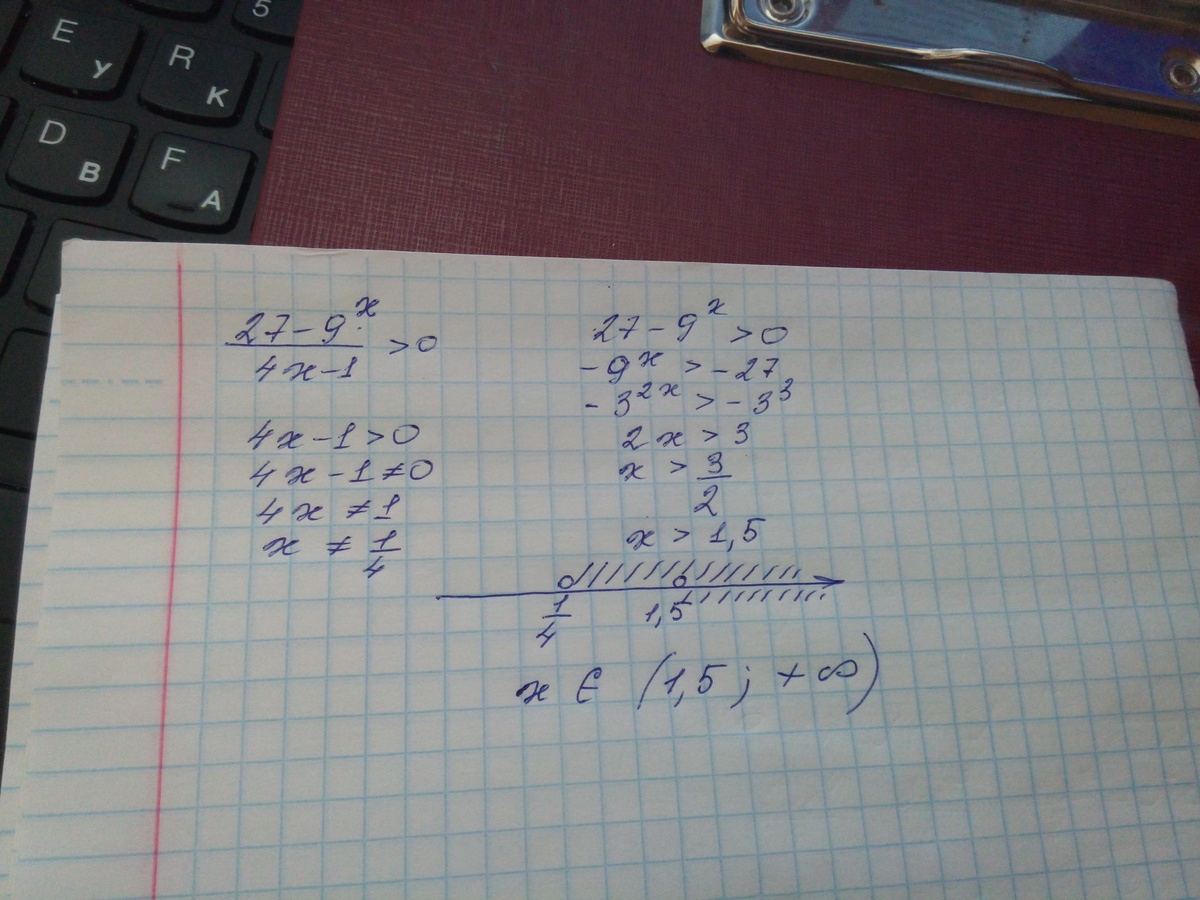 5
E У
R К
D В
F А
27 - 9^x
/ 4x - 1 > 0
4x - 1 > 0
4x - 1 ≠ 0
4x ≠ 1
x ≠ 1/4
27 - 9^x > 0
- 9^x > - 27
- 3^2x > - 3^3
2x > 3
x > 3/2
x > 1,5
1/4 1,5
x ∈ (1,5 ; + ∞)